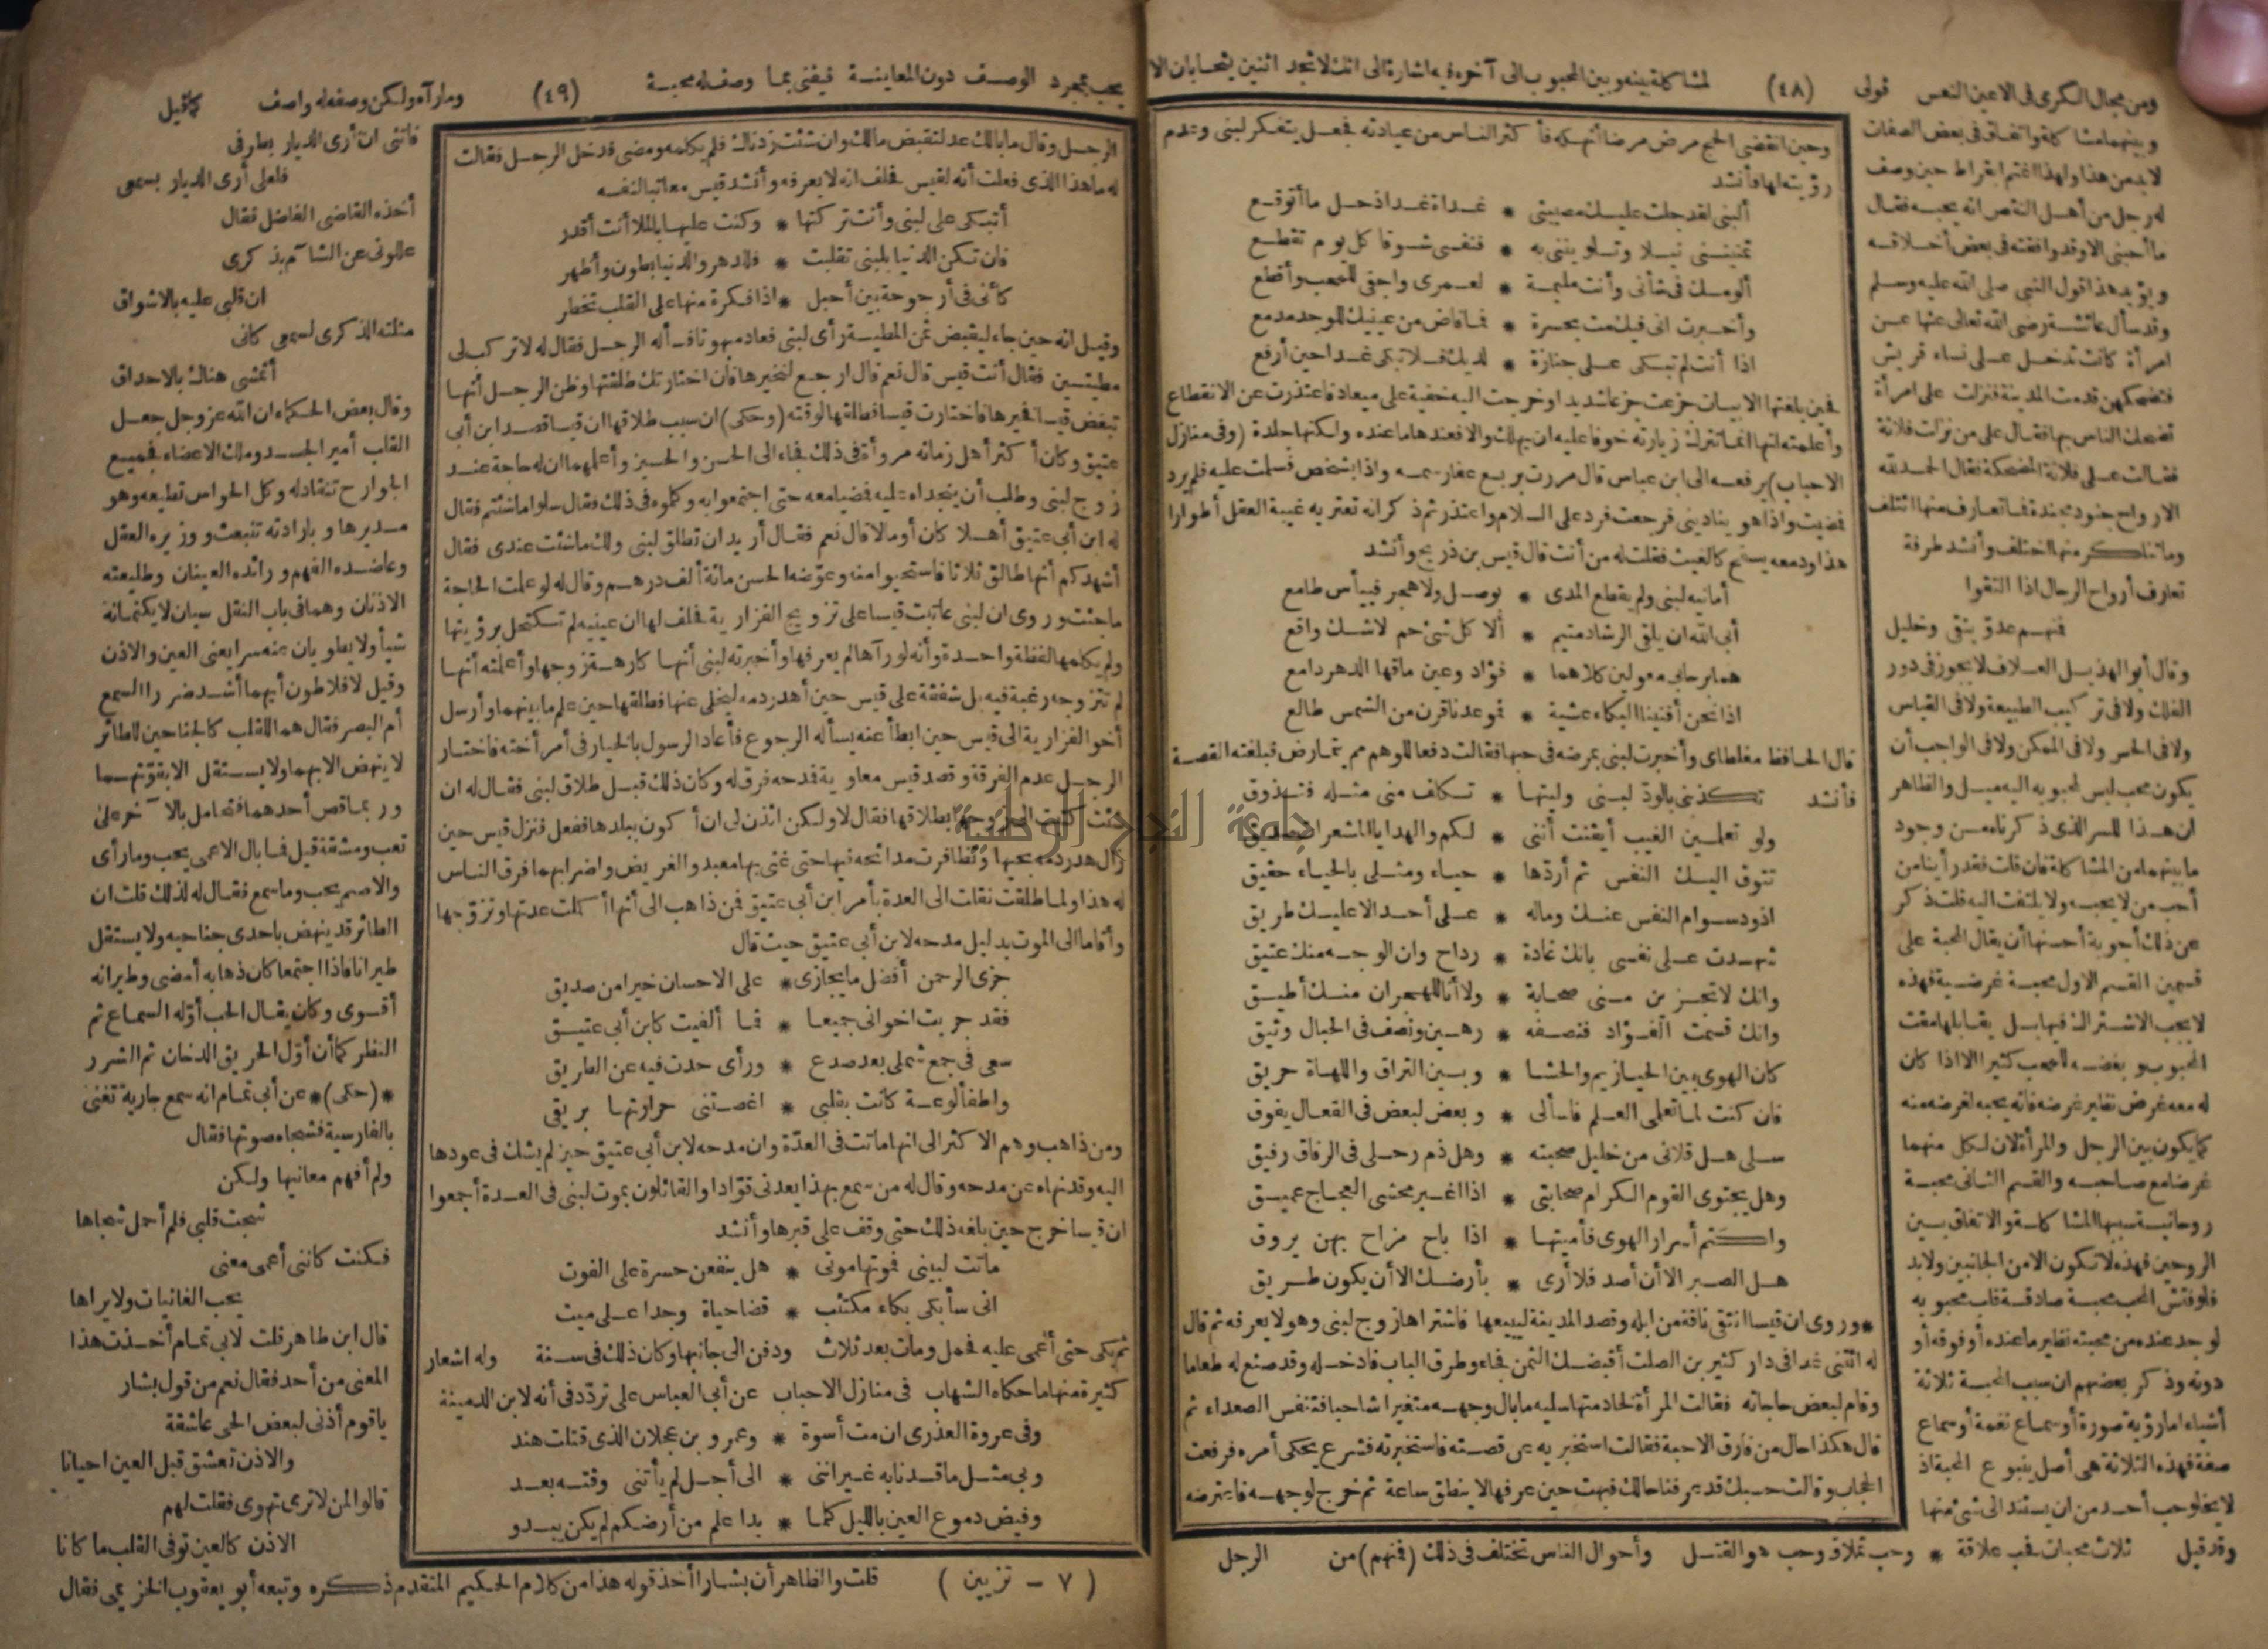 ومن مجال الكرى فى الاعين النعس قولى (٤٨) لمشاكلة بينه وبين المحبوب الى آخره فيه اشارة الى انك لا تجد اثنين يتحابان الا
وبينهما مشاكلة واتفاق فى بعض الصفات
لابد من هذا ولهذا اغتم ابقراط حين وصف
له رجل من أهل النقص انه يحبه فقال
ما أحبنى الا وقد وافقته فى بعض أخلاقه
ويؤيد هذا قول النبى صلى الله عليه وسلم
وقد سأل عائشة رضى الله تعالى عنها عن
امرأة كانت تدخل على نساء قريش
فتضحكهن قدمت المدينة فنزلت على امرأة
تضحك الناس بها فقال على من نزلت فلانة
فقالت على فلانة المضحكة فقال الحمد لله
الارواح جنود مجندة فما تعارف منها ائتلف
وما تناكر منها اختلف وأنشد طرفة
تعارف أرواح الرجال اذا التقوا
فمنهم عدو يتقى وخليل
وقال أبو الهذيل العلاف لا يجوز فى دور
الفلك ولا فى تركيب الطبيعة ولا فى القياس
ولا فى الحس ولا فى الممكن ولا فى الواجب أن
يكون محب ليس لمحبوبه اليه ميل والظاهر
ان هذا للسر الذى ذكرناه من وجود
ما بينهما من المشاكلة فان قلت فقد رأينا من
أحب من لا يحبه ولا يلتفت اليه قلت ذكر
عن ذلك أجوبة أحسنها أن يقال المحبة على
قسمين القسم الاول محبة غرضية فهذه
لا يجب الاشتراك فيها بل يقابلها مقت
المحبوب وبغضه للمحب كثيرا الا اذا كان
له معه غرض نظير غرضه فانه يحبه لغرضه منه
كما يكون بين الرجل والمرأة لان لكل منهما
غرضا مع صاحبه والقسم الثانى محبة
روحانية سببها المشاكلة والاتفاق بين
الروحين فهذه لا تكون الا من الجانبين ولابد
فلو فتش المحب محبة صادقة قلب محبوبه
لوجد عنده من محبته نظير ما عنده أو فوقه أو
دونه وذكر بعضهم ان سبب المحبة ثلاثة
أشياء اما رؤية صورة أو سماع نغمة أو سماع
صفة فهذه الثلاثة هى أصل ينبوع المحبة اذ
لا يخلو حب أحد من ان يستند الى شئ منها
وقد قيل ثلاث محبات فحب علاقة * وحب تملاق وحب هو القتل وأحوال الناس تختلف فى ذلك (فمنهم) من
وحين انقضى الحج مرض مرضا أنهكه فأكثر الناس من عيادته فجعل يتفكر لبنى وعدم
رؤيته لها فأنشد
ألبنى لقد جلت عليك مصيبتى * غداة غد اذ حل ما أتوقع
تمنيننى نيلا وتلوينى به * فنفسى شوقا كل يوم تقطع
ألومك فى شأنى وأنت مليمة * لعمرى واجفى للمحب وأقطع
وأخبرت انى فيك مت بحسرة * فما فاض من عينيك للوجد مدمع
اذا أنت لم تبكى على جنازة * لديك فلا تبكى غدا حين أرفع
فحين بلغتها الابيات جزعت جزعا شديدا وخرجت اليه خفية على ميعاد فاعتذرت عن الانقطاع
وأعلمته انها انما تترك زيارته خوفا عليه ان يهلك والا فعندها ما عنده ولكنها جلدة (وفى منازل
الاحباب) يرفعه الى ابن عباس قال مررت بربع عفا رسمه واذا بشخص فسلمت عليه فلم يرد
فمضيت واذا هو ينادينى فرجعت فرد على السلام واعتذر ثم ذكر انه تعتريه غيبة العقل أطوارا
هذا ودمعه يسفح كالغيث فقلت له من أنت قال قيس بن ذريح وأنشد
أمانيه لبنى ولم يقطع المدى * بوصل ولا هجر فييأس طامع
أبى الله ان يلقى الرشاد متيم * ألا كل شئ حم لا شك واقع
هما برحا بى معولين كلاهما * فؤاد وعين ماقها الدهر دامع
اذا نحن أفنينا البكاء عشية * فموعدنا قرن من الشمس طالع
قال الحافظ مغلطاى وأخبرت لبنى بمرضه فى حبها فقالت دفعا للوهم هو يتمارض فبلغته القصة
فأنشد تكذبنى بالود لبنى وليتها * تكلف منى مثله فتذوق
ولو تعلمين الغيب أيقنت أننى * لكم والهدايا المشعرات صديق
تتوق اليك النفس ثم أردها * حياء ومثلى بالحياء حقيق
اذود سوام النفس عنك وماله * على أحد الا عليك طريق
شهدت على نفسى بانك غادة * رداح وان الوجه منك عتيق
وانك لا تجزين منى صحابة * ولا أنا للهجران منك أطيق
وانك قسمت الفؤاد فنصفه * رهين ونصف فى الحبال وثيق
كان الهوى بين الحيازيم والحشا * وبين التراقى واللهاة حريق
فان كنت لما تعلمى العلم فاسألى * وبعض لبعض فى الفعال يفوق
سلى هل قلانى من خليل صحبته * وهل ذم رحلى فى الرفاق رفيق
وهل يجتوى القوم الكرام صحابتى * اذا اغبر مخشى العجاج عميق
واكتم أسرار الهوى فأميتها * اذا باح مزاح بهن بروق
هل الصبر الا أن أصد فلا أرى * بأرضك الا أن يكون طريق
*وروى ان قيسا انتقى ناقة من ابله وقصد المدينة ليبيعها فاشتراها زوج لبنى وهو لا يعرفه ثم قال
له ائتنى غدا فى دار كثير بن الصلت أقبضك الثمن فجاء وطرق الباب فادخله وقد صنع له طعاما
وقام لبعض حاجاته فقالت المرأة لخادمتها سليه ما بال وجهه متغيرا شاحبا فتنفس الصعداء ثم
قال هكذا حال من فارق الاحبة فقالت استخبريه عن قصته فاستخبرته فشرع يحكى أمره فرفعت
الحجاب وقالت حسبك قد عرفنا حالك فبهت حين عرفها لا ينطق ساعة ثم خرج لوجهه فاعترضه
الرجل
يحب بمجرد الوصف دون المعاينة فيفنى بما وصف له محبة (٤٩) وما رآه ولكن وصفه له واصف كما قيل
الرجل وقال ما بالك عد لتقبض مالك وان شئت زدناك فلم يكلمه ومضى فدخل الرجل فقالت
له ما هذا الذى فعلت أنه لقيس فحلف انه لا يعرفه وأنشد قيس معاتبا لنفسه
أتبكى على لبنى وأنت تركتها * وكنت عليها بالملا أنت أقدر
فان تكن الدنيا بلبنى تقلبت * فللدهر والدنيا بطون وأظهر
كأنى فى أرجوحة بين أحبل * اذا فكرة منها على القلب تخطر
وقيل انه حين جاء ليقبض ثمن المطية رأى لبنى فعاد مبهوتا فسأله الرجل فقال له لا تركب لى
مطيتين فقال أنت قيس قال نعم قال ارجع لنخيرها فان اختارتك طلقتها وظن الرجل أنها
تبغض قيسا فخيرها فاختارت قيسا فطلقها لوقته (وحكى) ان سبب طلاقها ان قيسا قصد ابن أبى
عتيق وكان أكثر أهل زمانه مروأة فى ذلك فجاء الى الحسن والحسين وأعلمهما ان له حاجة عند
زوج لبنى وطلب أن ينجداه عليه فمضيا معه حتى اجتمعوا به وكلموه فى ذلك فقال سلوا ما شئتم فقال
له ابن أبى عتيق أهلا كان أو مالا قال نعم فقال أريد ان تطلق لبنى ولك ما شئت عندى فقال
أشهدكم أنها طالق ثلاثا فاستحيوا منه وعوضه الحسن مائة ألف درهم وقال له لو علمت الحاجة
ما جئت وروى ان لبنى عاتبت قيسا على تزويج الفزارية فحلف لها ان عينيه لم تكتحل برؤيتها
ولم يكلمها لفظة واحدة وأنه لو رآها لم يعرفها وأخبرته لبنى أنها كارهة زوجها وأعلمته أنها
لم تتزوجه رغبة فيه بل شفقة على قيس حين أهدر دمه ليخلى عنها فطلقها حين علم ما بينهما وأرسل
أخو الفزارية الى قيس حين ابطأ عنه يسأله الرجوع فأعاد الرسول بالخيار فى أمر أخته فاختار
الرجل عدم الفرقة وقصد قيس معاوية فمدحه فرق له وكان ذلك قبل طلاق لبنى فقال له ان
شئت كتبت الى زوجها بطلاقها فقال لا ولكن ائذن لى ان أكون ببلدها ففعل فنزل قيس حين
زال هدر دمه بحيها وتظافرت مدائحه فيها حتى غنى بها معبد والغريض واضرابهما فرق الناس
له هذا ولما طلقت نقلت الى العدة بأمر ابن أبى عتيق فمن ذاهب الى أنها أكملت عدتها وتزوجها
وأقاما الى الموت بدليل مدحه لابن أبى عتيق حيث قال
جزى الرحمن أفضل ما يجازى * على الاحسان خيرا من صديق
فقد جربت اخوانى جميعا * فما ألفيت كابن أبى عتيق
سعى فى جمع شملى بعد صدع * ورأى حدت فيه عن الطريق
واطفأ لوعة كانت بقلبى * اغصتنى حرارتها بريقى
ومن ذاهب وهم الاكثر الى انها ماتت فى العدة وان مدحه لابن أبى عتيق حين لم يشك فى عودها
اليه وقد نهاه عن مدحه وقال له من سمع بهذا يعدنى قوادا والقائلون بموت لبنى فى العدة أجمعوا
ان قيسا خرج حين بلغه ذلك حتى وقف على قبرها وأنشد
ماتت لبينى فموتها موتى * هل ينفعن حسرة على الفوت
انى سأبكى بكاء مكتئب * قضا حياة وجدا على ميت
ثم بكى حتى أغمى عليه فحمل ومات بعد ثلاث ودفن الى جانبها وكان ذلك فى سنة وله اشعار
كثيرة منها ما حكاه الشهاب فى منازل الاحباب عن أبى العباس على تردد فى أنه لابن الدمينة
وفى عروة العذرى ان مت أسوة * وعمرو بن عجلان الذى قتلت هند
وبى مثل ما قد نابه غير اننى * الى أجل لم يأتنى وقته بعد
وفيض دموع العين بالليل كلما * بدا علم من أرضكم لم يكن يبدو
فاتنى ان أرى الديار بطرفى
فلعلى أرى الديار بسمعى
أخذه القاضى الفاضل فقال
عللونى عن الشآم بذكرى
ان قلبى عليه بالاشواق
مثلته الذكرى لسمعى كانى
أتمشى هناك بالاحداق
وقال بعض الحكماء ان الله عز وجل جعل
القلب أمير الجسد وملك الاعضاء فجميع
الجوارح تنقاد له وكل الحواس تطيعه وهو
مديرها وبارادته تنبعث ووزيره العقل
وعاضده الفهم ورائده العينان وطليعته
الاذنان وهما فى باب النقل سيان لا يكتمانه
شيأ ولا يطويان عنه سرا يعنى العين والاذن
وقيل لافلاطون أيهما أشد ضررا السمع
أم البصر فقال هما للقلب كالجناحين للطائر
لا ينهض الا بهما ولا يستقل الا بقوتهما
وربما قص أحدهما فتحامل بالآخر على
تعب ومشقة قيل فما بال الاعمى يحب وما رأى
والاصم يحب وما سمع فقال له لذلك قلت ان
الطائر قد ينهض باحدى جناحيه ولا يستقل
طيرانا فاذا اجتمعا كان ذهابه أمضى وطيرانه
أقوى وكان يقال الحب أوله السماع ثم
النظر كما أن أول الحريق الدخان ثم الشرر
*(حكى)* عن أبى تمام انه سمع جارية تغنى
بالفارسية فشجاه صوتها فقال
ولم أفهم معانيها ولكن
شجت قلبى فلم أجهل شجاها
فكنت كاننى أعمى معنى
يحب الغانيات ولا يراها
قال ابن طاهر قلت لابى تمام أخذت هذا
المعنى من أحد فقال نعم من قول بشار
يا قوم أذنى لبعض الحى عاشقة
والاذن تعشق قبل العين احيانا
قالوا لمن لا ترى تهوى فقلت لهم
الاذن كالعين توفى القلب ما كانا
(٧ - تزيين) قلت والظاهر أن بشارا أخذ قوله هذا من كلام الحكيم المتقدم ذكره وتبعه أبو يعقوب الخزيمى فقال
جامعة النجاح الوطنية